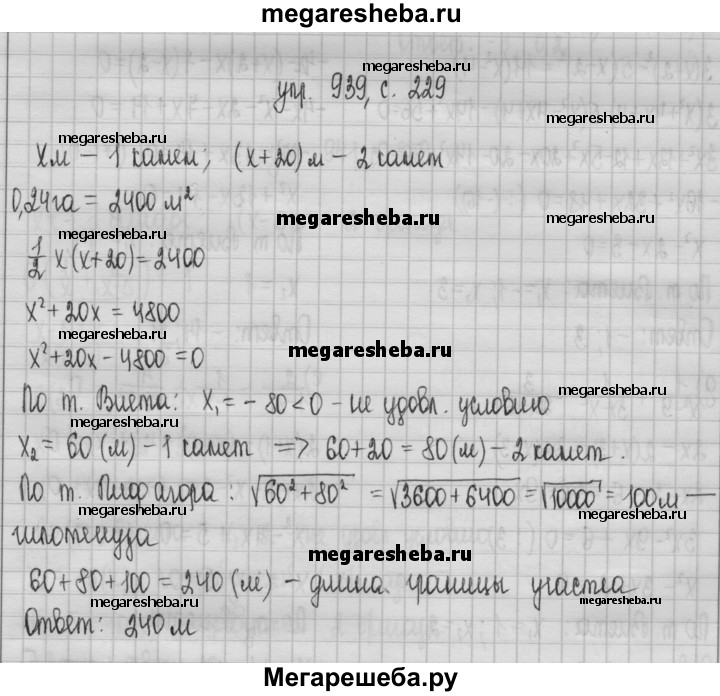 megaresheba.ru
megaresheba.ru
упр. 939, с. 229
megaresheba.ru
megaresheba.ru
Xм – 1 катет; (x+20) м – 2 катет
megaresheba.ru
0,24га = 2400 м²
megaresheba.ru
megaresheba.ru
megaresheba.ru
1/2 x (x+20) = 2400
x² + 20x = 4800
megaresheba.ru
megaresheba.ru
x² + 20x - 4800 = 0
megaresheba.ru
По т. Виета: x₁ = - 80 < 0 - не удовл. условию
megaresheba.ru
x₂ = 60 (м) – 1 катет => 60+20 = 80 (м) – 2 катет.
megaresheba.ru
По т. Пифагора: √60² + 80² = √3600 + 6400 = √10000 = 100м –
гипотенуза
megaresheba.ru
60 + 80 + 100 = 240 (м) – длина границы участка
megaresheba.ru
megaresheba.ru
Ответ: 240 м
Мегарешеба.ру